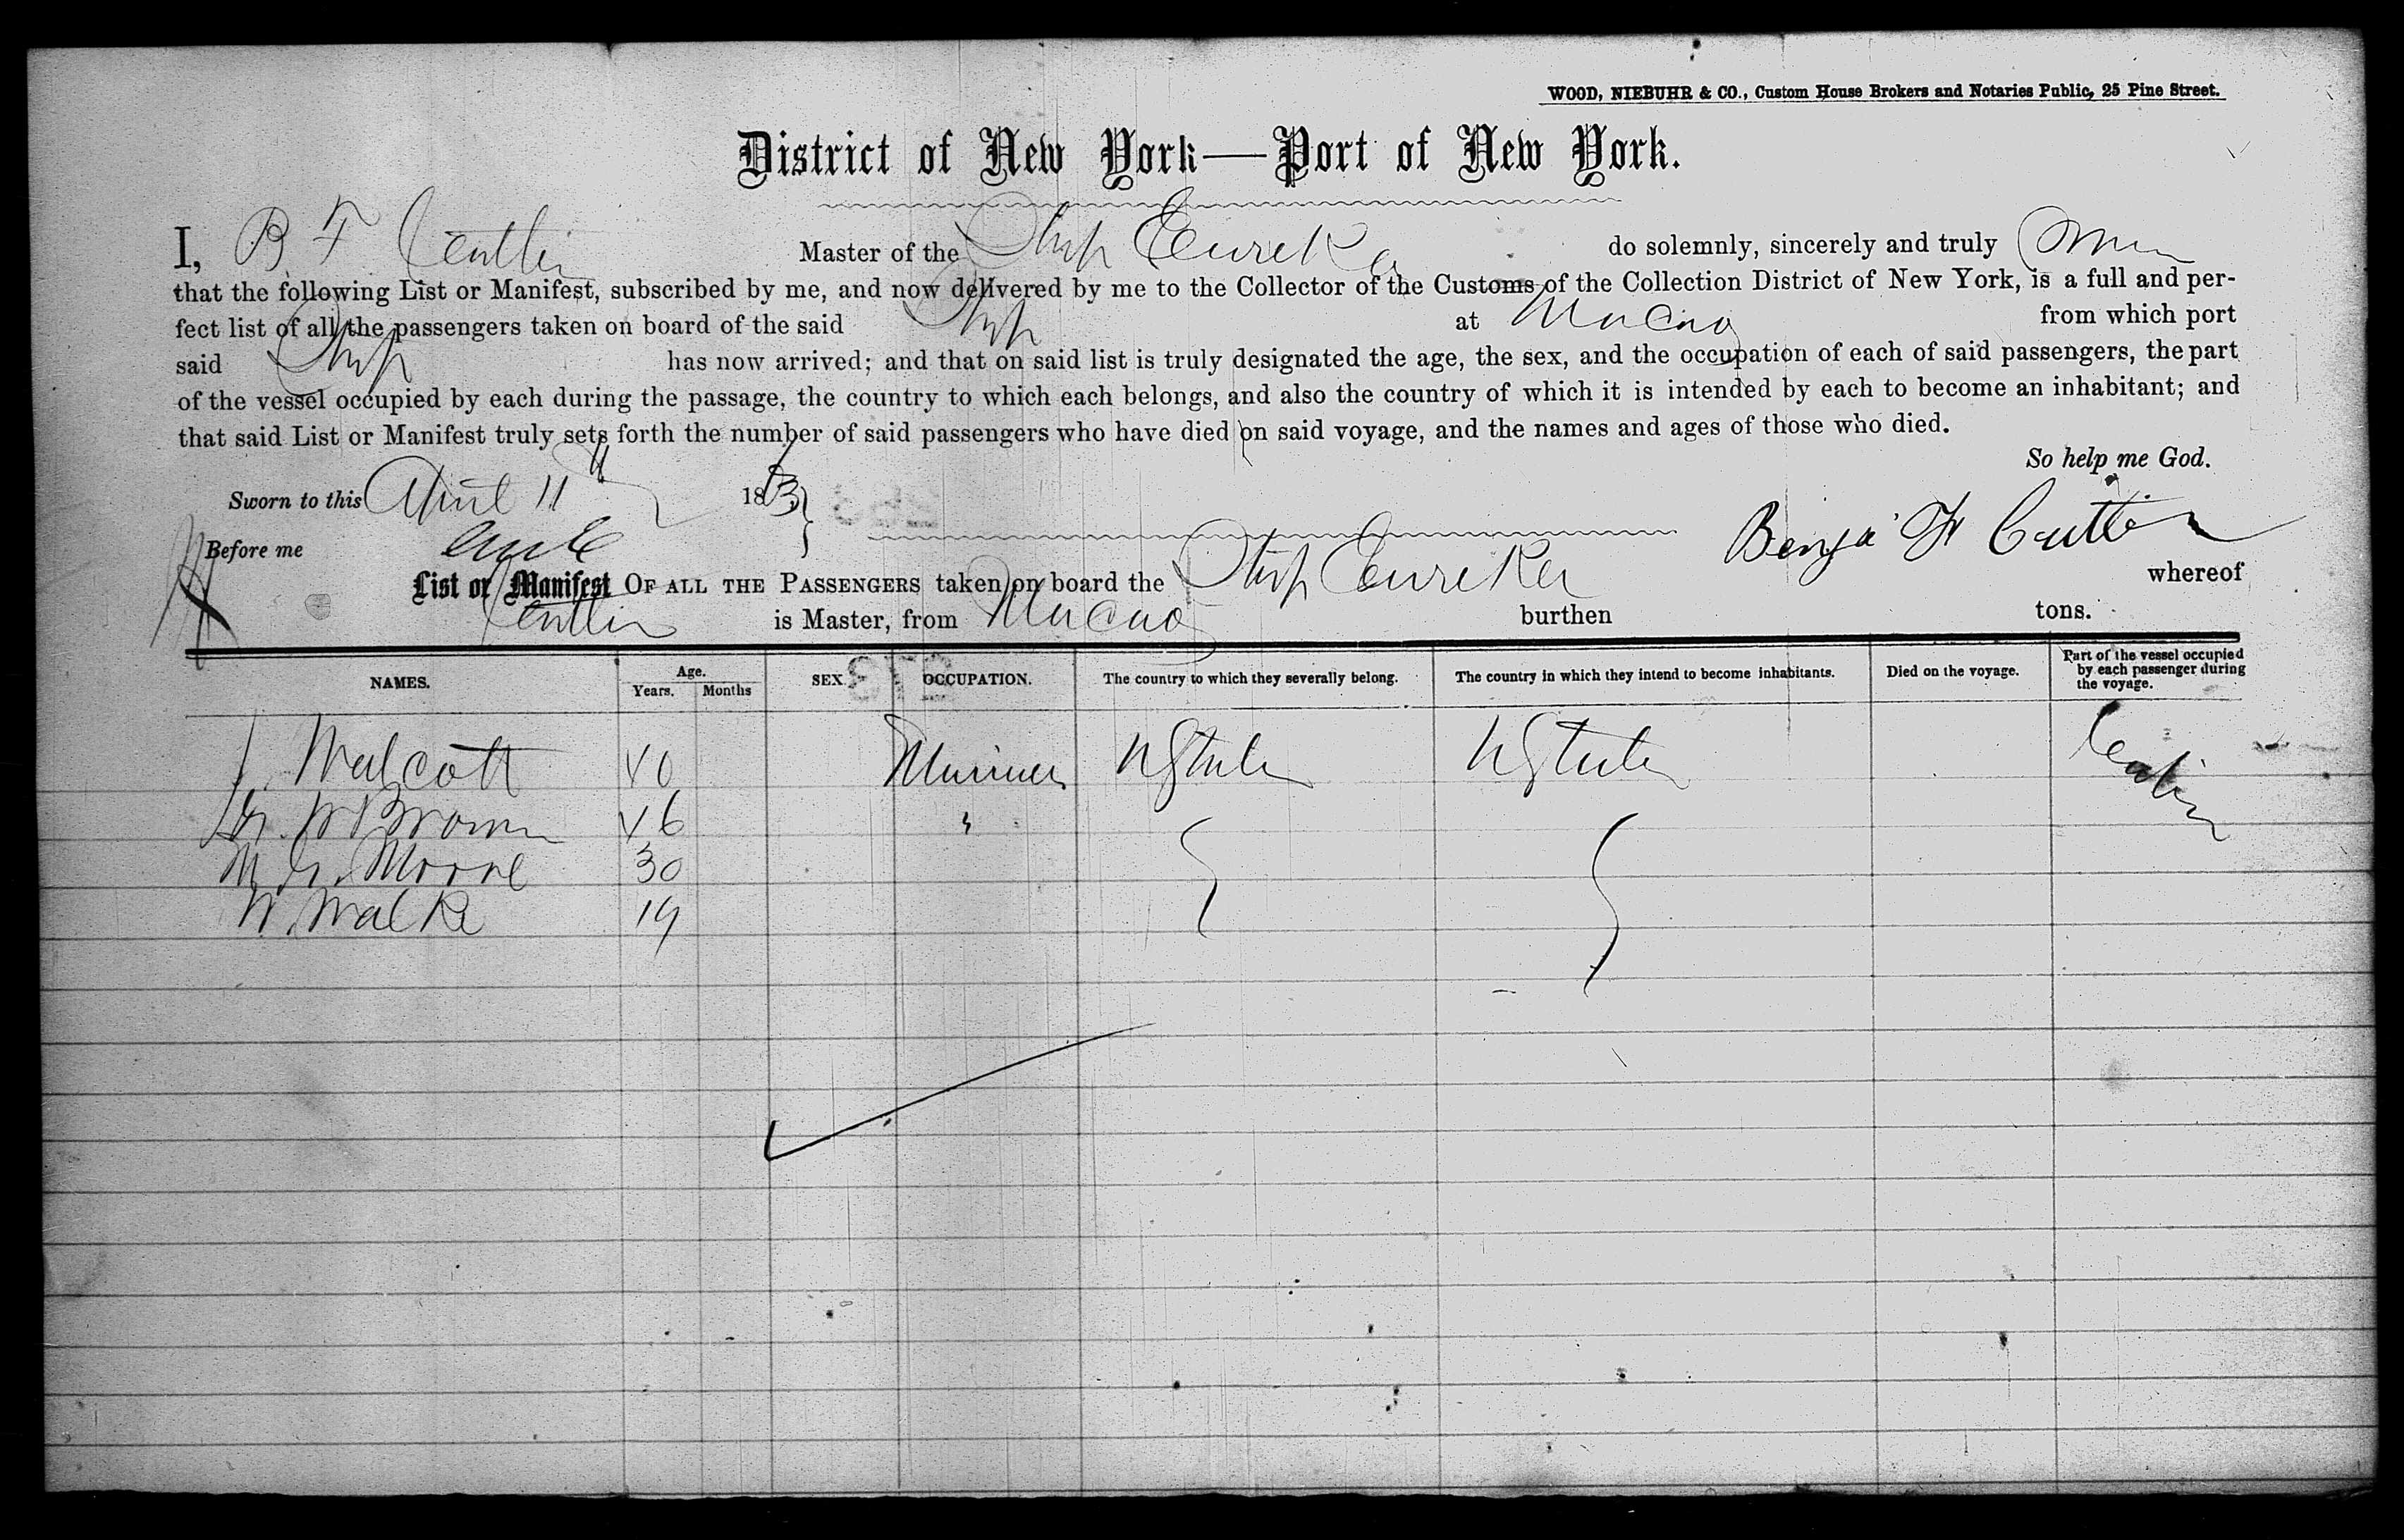 WOOD, NIEBUHR & CO., Custom House Brokers and Notaries Public, 25 Pine Street.
District of New York—Port of New York.
I, B F Cutler Master of the Ship Eureka do solemnly, sincerely and truly
that the following List or Manifest, subscribed by me, and now delivered by me to the Collector of the Customs of the Collection District of New York, is a full and per-
fect list of all the passengers taken on board of the said Ship at Macao from which port
said Ship has now arrived; and that on said list is truly designated the age, the sex, and the occupation of each of said passengers, the part
of the vessel occupied by each during the passage, the country to which each belongs, and also the country of which it is intended by each to become an inhabitant; and
that said List or Manifest truly sets forth the number of said passengers who have died on said voyage, and the names and ages of those who died.
So help me God.
Sworn to this April 11 1863
Before me Benja F Cutler
List or Manifest OF ALL THE PASSENGERS taken on board the Ship Eureka whereof
Cutler is Master, from Macao burthen tons.
NAMES. Age. Years. Months SEX OCCUPATION. The country to which they severally belong. The country in which they intend to become inhabitants. Died on the voyage. Part of the vessel occupied by each passenger during the voyage.
Walcott 40 Mariner U States U States Cabin
W Brown 46 "
M G. Moore 30
W. Walke 19